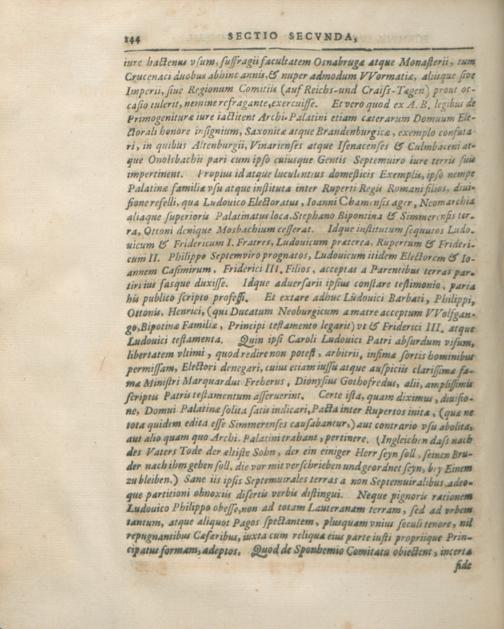 144 SECTIO SECVNDA,
iure hactenus vsum, suffragii facultatem Osnabrugæ atque Monasterii, tum
Crucenaci duobus abhinc annis, & nuper admodum VVormatiæ, aliisque sive
Imperii, siue Regionum Comitiis (auf Reichs-und Craiß-Tagen) prout oc-
casio tulerit, nemine refragante, exercuisse. Et vero quod ex A.B. legibus de
Primogenituræ iure iactitent Archi-Palatini etiam cæterarum Domuum Ele-
ctorali honore insignium, Saxonicæ atque Brandenburgicæ, exemplo confuta-
ri, in quibus Altenburgii, Vinarienses atque Isenacenses & Culmbaceni at-
que Onolsbachii pari cum ipso cuiusque Gentis Septemuiro iure terris suis
impertinent. Propius id atque luculentius domesticis Exemplis, ipso nempe
Palatinæ familiæ vsu atque instituta inter Ruperti Regis Romani filios, diui-
sione refelli, qua Ludouico Electoratus, Ioanni Chamensis ager, Neomarchia
aliaque superioris Palatinatus loca. Stephano Bipontina & Simmerensis ter-
ra, Ottoni denique Mosbachium cesserat. Idque institutum sequutos Ludo-
uicum & Fridericum I. Fratres, Ludouicum præterea, Rupertum & Frideri-
cum II. Philippo Septemviro prognatos, Ludouicum itidem Electorem & Io-
annem Casimirum, Friderici III. Filios, acceptas à Parentibus terras par-
tiri ius fasque duxisse. Idque adversarii ipsius constare testimonio, paria
his publico scripto professi. Et extare adhuc Ludouici Barbati, Philippi,
Ottonis, Henrici, (qui Ducatum Neoburgicum a matre acceptum VVolfgan-
go, Bipotinæ Familiæ, Principi testamento legarit) vt & Friderici III. atque
Ludouici testamenta. Quin ipsi Caroli Ludouici Patri absurdum visum,
libertatem vltimi, quod redire non potest, arbitrii, infimæ sortis hominibus
permissam, Electori denegari, cuius etiam iussu atque auspiciis clarissimæ fa-
mæ Ministri Marquardus Freherus, Dionysius Gothofredus, alii, amplissimis
scriptis Patris testamentum asseruerint. Certe ista, quam diximus, diuisio-
ne, Domui Palatinæ solita satis indicari, Pacta inter Rupertos inita, (quæ ne
tota quidem edita esse Simmerenses causabantur,) aut contrario vsu abolita,
aut alio quam quo Archi-Palatini trahant, pertinere. (Ingleichen daß nach
des Vaters Tode der ältiste Sohn, der ein einiger Herr seyn soll, seinen Bru-
der nach ihm geben soll, die vor mit verschrieben und geordnet seyn, bey Einem
zu bleiben.) Sane iis ipsis Septemuirales terras a non Septemuiralibus adeo-
que partitioni obnoxiis disertis verbis distingui. Neque pignoris rationem
Ludouico Philippo obesse, non ad totam Lauteranam terram, sed ad vrbem
tantum, atque aliquot Pagos spectantem, plusquam vnius seculi tenore, nil
repugnantibus Cæsaribus, iuxta cum reliqua eius parte iusti propriique Prin-
cipatus formam, adeptos. Quod de Sponhemio Comitatu obiectent, incerta
fide